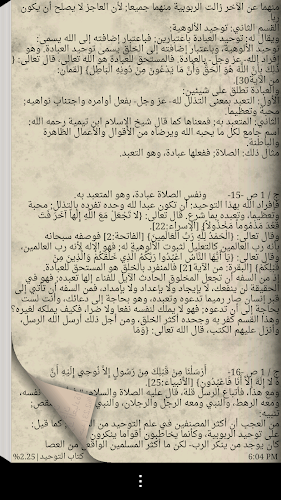 منهما عن الآخر زالت الربوبية منهما جميعا؛ لأن العاجز لا يصلح أن يكون
ربا.
القسم الثاني: توحيد الألوهية:
ويقال له: توحيد العبادة باعتبارين؛ فباعتبار إضافته إلى الله يسمى:
توحيد الألوهية، وباعتبار إضافته إلى الخلق يسمى توحيد العبادة. وهو
إفراد الله- عز وجل- بالعبادة. فالمستحق للعبادة هو الله تعالى، قال تعالى: {
ذَلِكَ بِأَنَّ اللَّهَ هُوَ الْحَقُّ وَأَنَّ مَا يَدْعُونَ مِنْ دُونِهِ الْبَاطِلُ} [لقمان:
من الآية30].
والعبادة تطلق على شيئين:
الأول: التعبد بمعنى التذلل لله- عز وجل- بفعل أوامره واجتناب نواهيه؛
محبة وتعظيما.
الثاني: المتعبد به؛ فمعناها كما قال شيخ الإسلام ابن تيمية رحمه الله:
اسم جامع لكل ما يحبه الله ويرضاه من الأقوال والأعمال الظاهرة
والباطنة.
مثال ذلك: الصلاة؛ ففعلها عبادة، وهو التعبد.
ج / 1 ص -15- ونفس الصلاة عبادة، وهو المتعبد به.
فإفراد الله بهذا التوحيد: أن تكون عبدا لله وحده تفرده بالتذلل؛ محبة
وتعظيما، وتعبده بما شرع، قال تعالى: {لا تَجْعَلْ مَعَ اللَّهِ إِلَهاً آخَرَ فَتَ
قْعُدَ مَذْمُوماً مَخْذُولاً} [الإسراء:22].
وقال تعالى: {الْحَمْدُ لِلَّهِ رَبِّ الْعَالَمِينَ} [الفاتحة:2] فوصفه سبحانه
بأنه رب العالمين كالتعليل لثبوت الألوهية له؛ فهو الإله لأنه رب العالمين،
وقال تعالى: {يَا أَيُّهَا النَّاسُ اعْبُدُوا رَبَّكُمُ الَّذِي خَلَقَكُمْ وَالَّذِينَ مِنْ
قَبْلِكُمْ} [البقرة: من الآية21] فالمنفرد بالخلق هو المستحق للعبادة.
إذ من السفه أن تجعل المخلوق الحادث الآيل للفناء إلها تعبده؛ فهو في
الحقيقة لن ينفعك، لا بإيجاد ولا بإعداد ولا بإمداد، فمن السفه أن تأتي إلى
قبر إنسان صار رميما تدعوه وتعبده، وهو بحاجة إلى دعائك، وأنت لست
بحاجة إلى أن تدعوه؛ فهو لا يملك لنفسه نفعا ولا ضرا، فكيف يملكه لغيره؟
وهذا القسم كفر به وجحده أكثر الخلق، ومن أجل ذلك أرسل الله الرسل،
وأنزل عليهم الكتب، قال الله تعالى: {وَمَا
ج / 1 ص -16- أَرْسَلْنَا مِنْ قَبْلِكَ مِنْ رَسُولٍ إِلاَّ نُوحِي إِلَيْهِ أَنَّ
هُ لا إِلَهَ إِلاَّ أَنَا فَاعْبُدُونِ} [الأنبياء:25].
ومع هذا، فأتباع الرسل قلة، قال عليه الصلاة والسلام نفسه،
ومعه الرهط، والنبي ومعه الرجل والرجلان، والنبي
تنبيه:
من العجب أن أكثر المصنفين في علم التوحيد من
على توحيد الربوبية، وكأنما يخاطبون أقواما ينكرون
كان يوجد من ينكر الرب- لكن ما أكثر المسلمين الواقعين
كما قيل:
من العصا
6:04 PM
كتاب التوحيد|2.25%